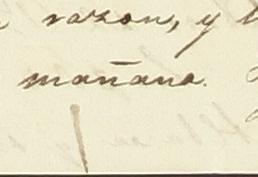 razon, y
mañana.